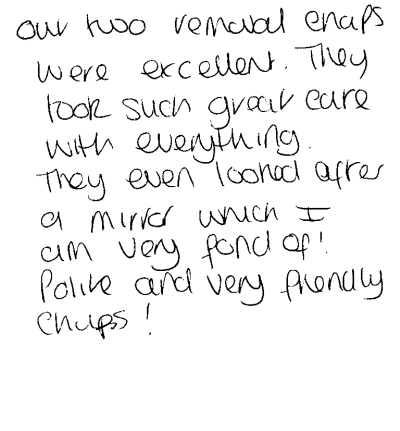 our two removal chaps
were excellent. They
took such great care
with everything.
They even looked after
a mirror which I
am very fond of!
Polite and very friendly
chaps!